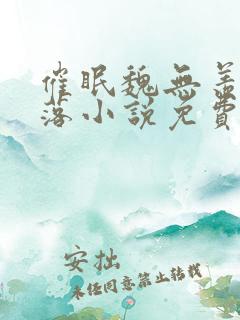 催眠魏無羨
落小說免費
安拙
未经同意禁止转载